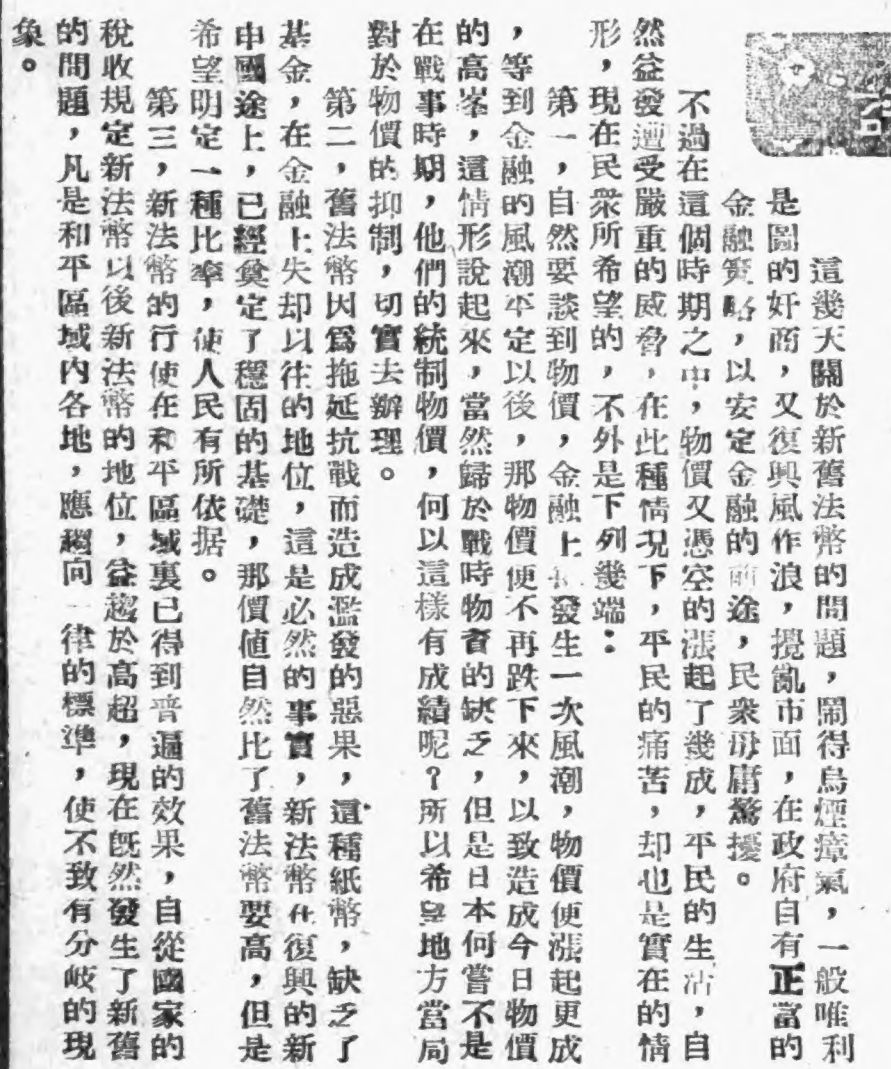 這幾天關於新舊法幣的問題，鬧得烏煙瘴氣，一般唯利
是圖的奸商，又復興風作浪，攪亂市面，在政府自有正當的
金融策略，以安定金融的前途，民衆毋庸驚擾。
不過在這個時期之中，物價又憑空的漲起了幾成，平民的生活，自
然益發遭受嚴重的威脅，在此種情況下，平民的痛苦，却也是實在的情
形，現在民衆所希望的，不外是下列幾端：
第一，自然要談到物價，金融上發生一次風潮，物價便漲起更成
，等到金融的風潮平定以後，那物價便不再跌下來，以致造成今日物價
的高峯，這情形說起來，當然歸於戰時物資的缺乏，但是日本何嘗不是
在戰事時期，他們的統制物價，何以這樣有成績呢？所以希望地方當局
對於物價的抑制，切實去辦理。
第二，舊法幣因爲拖延抗戰而造成濫發的惡果，這種紙幣，缺乏了
基金，在金融上失却以往的地位，這是必然的事實，新法幣在復興的新
中國途上，已經奠定了穩固的基礎，那價値自然比了舊法幣要高，但是
希望明定一種比率，使人民有所依据。
第三，新法幣的行使在和平區域裏已得到普遍的效果，自從國家的
稅收規定新法幣以後新法幣的地位，益趨於高超，現在旣然發生了新舊
的問題，凡是和平區域内各地，應趨向一律的標準，使不致有分岐的現
象。